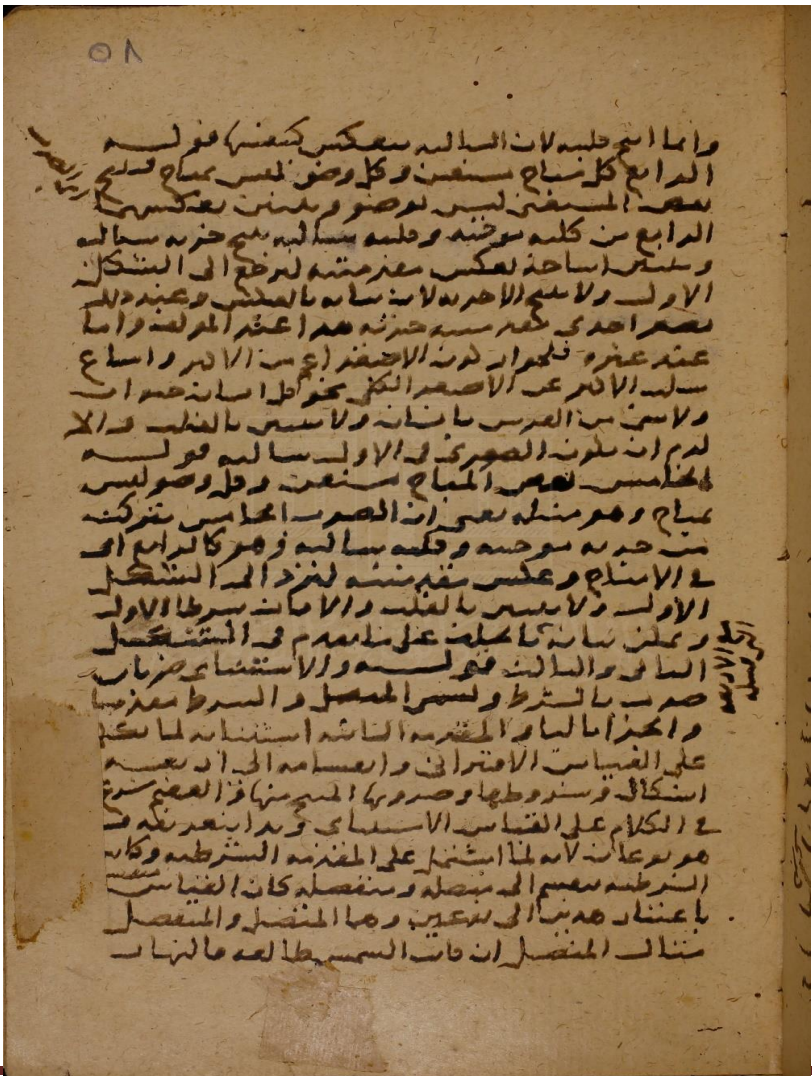 ٥٨
وانما انتج كليه لان السالبه تنعكس كنفسها قوله
الرابع كل مباح مستغن وكل وضو ليس بمباح فينتج
بعض المستغني ليس بوضو ويتبين بعكسهما
الرابع من كليه موجبه وكليه سالبه ينتج جزيه سالبه
ويتبين انتاجه بعكس مقدمتيه ليرجع الى الشكل
الاول ولا ينتج الا جزيه لان بيانه بالعكس وعند ذلك
تصير احدى مقدمتيه جزئيه هذا عند المولف واما
عند غيره فلجواز كون الاصغر اعم من الاكبر وامتناع
سلب الاكبر عن الاصغر الكلي نحو كل انسان حيوان
ولا شي من الفرس بانسان ولا يتبين بالقلب والا
لزم ان تكون الصغرى في الاول سالبه قوله
الخامس بعض المباح مستغن وكل وضو ليس
بمباح وهو مثله يعني ان الضرب الخامس يتركب
من جزيه موجبه وكليه سالبه وهو كالرابع اي
في الانتاج وعكس مقدمتيه ليرتد الى الشكل
الاول ولا يتبين بالقلب والا فات شرط الاول
ويمكن بيانه بالخلف على ما تقدم في الشكل
الثاني والثالث قوله والاستثنائي ضربان
ضرب بالشرط ويسمى المتصل والشرط مقدما
والجزا تاليا والمقدمه الثانيه استثنائيه لما تكلم
على القياس الاقتراني وانقسامه الى اربعه
اشكال وشروطها وضروبها المنتج منها والعقيم شرع
في الكلام على القياس الاستثنائي
هو نوعان لانه لما اشتمل على المقدمه الشرطيه وكانت
الشرطيه تنقسم الى متصله ومنفصله كان القياس
باعتبار هذين الى نوعين وهما المتصل والمنفصل
مثال المتصل ان كانت الشمس طالعه فالنهار